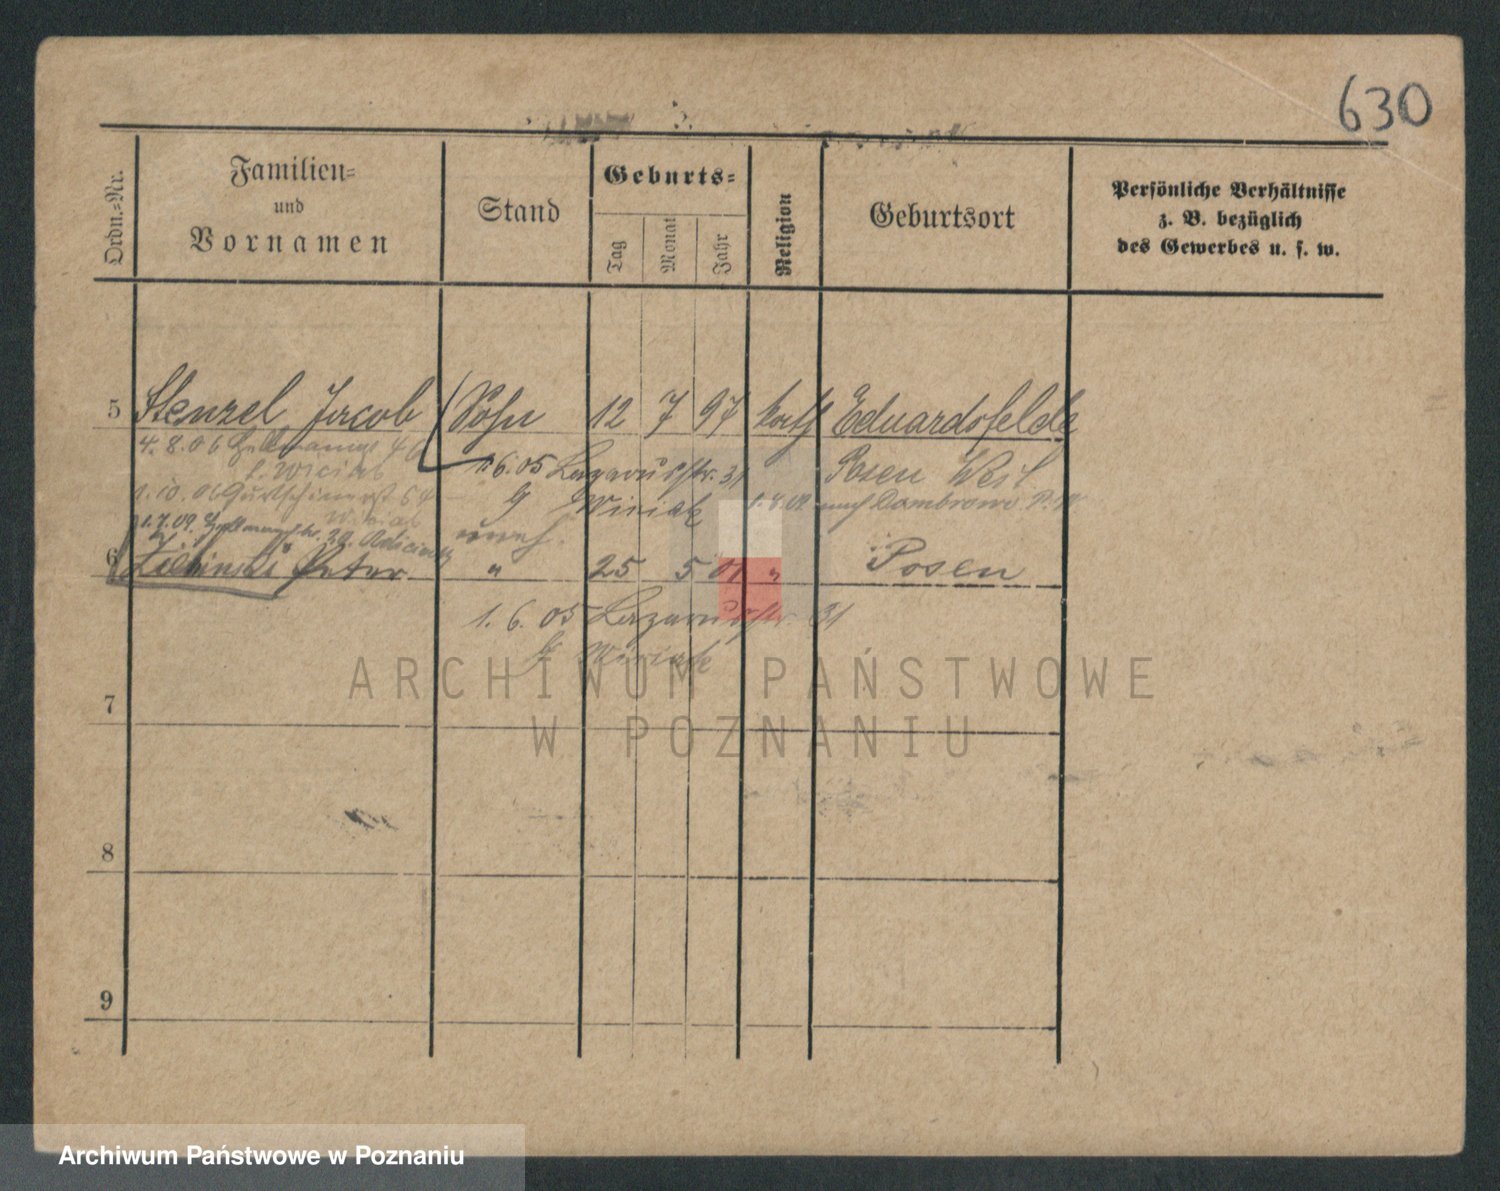 630
Ordn.-Nr.
Familien-
und
Vornamen
Stand
Geburts-
Tag
Monat
Jahr
Religion
Geburtsort
Persönliche Verhältnisse
z. B. bezüglich
des Gewerbes u. s. w.
5 Stenzel Jacob Sohn 12 7 97 kath Eduardsfelde
4. 8. 06 46
1. 6. 05 Lazarusstr. 31 Posen West
1. 10. 06
G Winiak nach Dombrowo
1. 7. 09.
6 Zielinski Peter " 25 5 01 " Posen
1. 6. 05 Lazarusstr. 31
G Winiak
ARCHIWUM PAŃSTWOWE
W POZNANIU
7
8
9
Archiwum Państwowe w Poznaniu